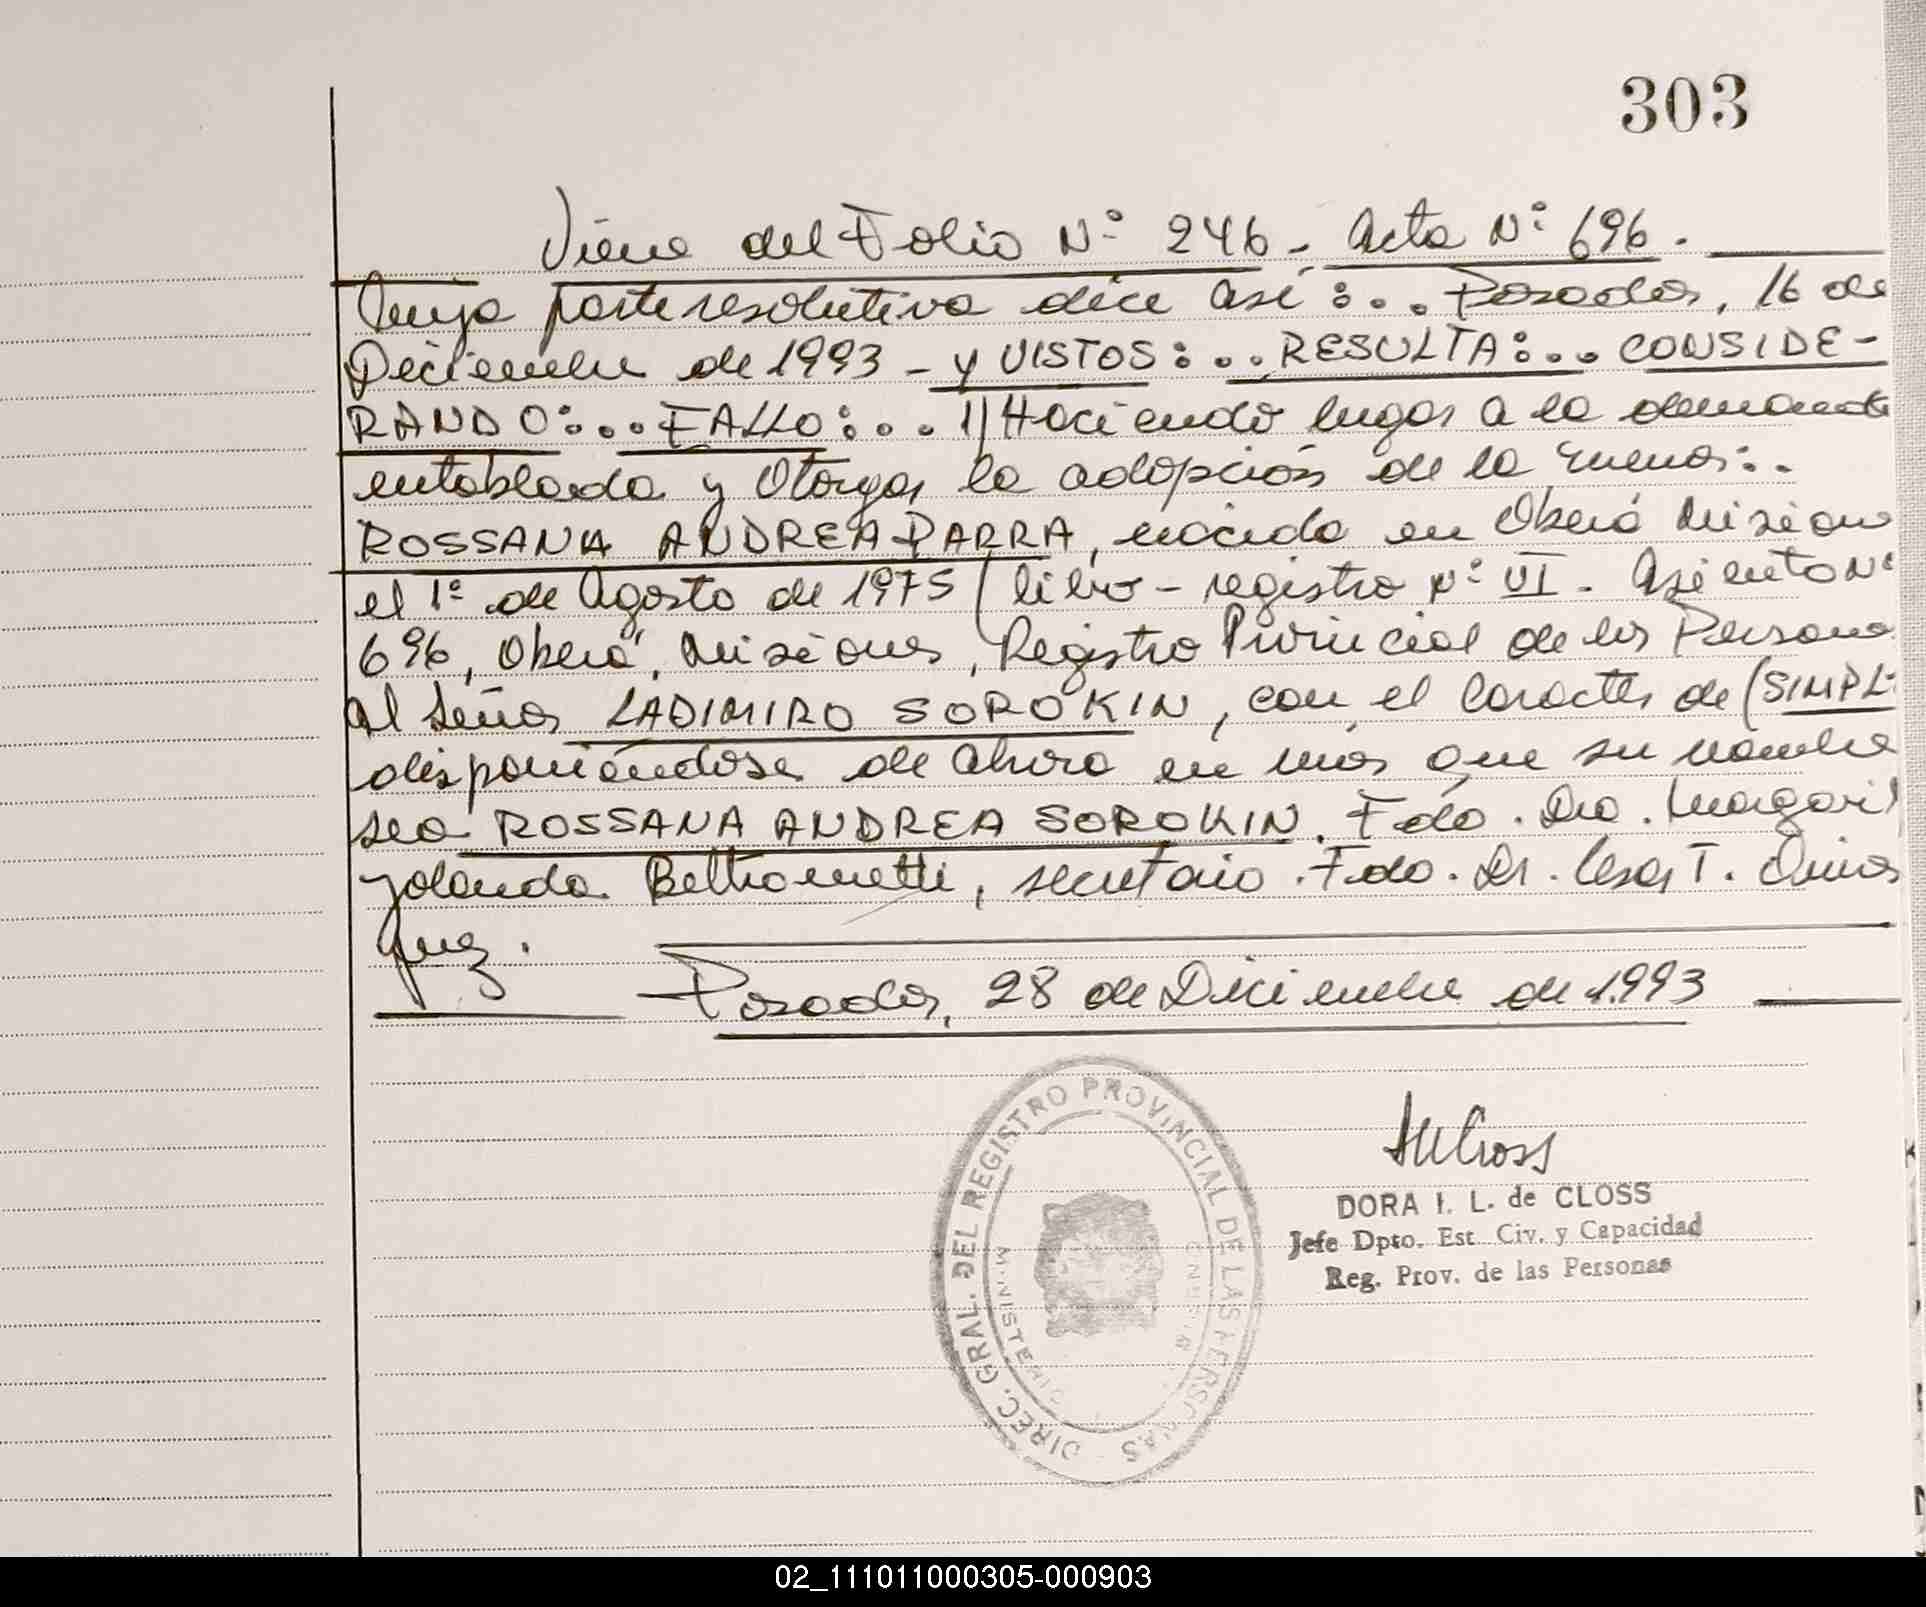 303
Viene del Folio Nº 246. Acta Nº 696.
Cuya parte resolutiva dice así:... Posadas, 16 de
Diciembre de 1993 - y VISTOS:... RESULTA:... CONSIDE-
RANDO:... FALLO:... 1) Haciendo lugar a la demanda
entablada y Otorgar la adopción de la menor:..
ROSSANA ANDREA PARRA, nacida en Oberá Misiones
el 1º de Agosto de 1975 (libro - registro Nº VI. Asiento Nº
696, Oberá, Misiones, Registro Provincial de las Personas
al Señor LADIMIRO SOROKIN, con el Carácter de (SIMPLE
disponiéndose de ahora en más que su nombre
sea ROSSANA ANDREA SOROKIN. Fdo. Dra. Margarit
Yolanda Beltrametti, secretario. Fdo. Dr. Cesar T.
Juez.
Posadas, 28 de Diciembre de 1.993
DIREC. GRAL. DEL REGISTRO PROVINCIAL DE LAS PERSONAS
MINISTERIO
DORA I. L. de CLOSS
Jefe Dpto. Est. Civ. y Capacidad
Reg. Prov. de las Personas
02_111011000305-000903